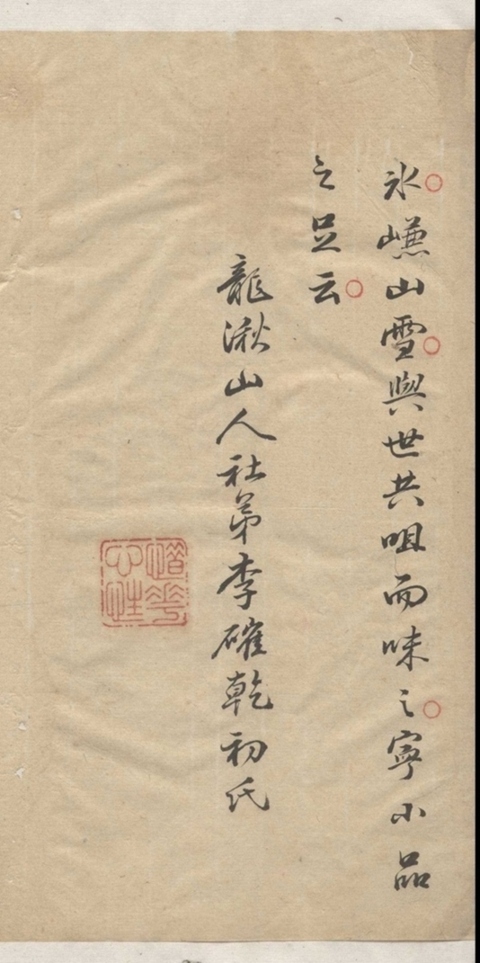 氷㠣山雪與世共咀而味之寧小品
之足云
龍湫山人社弟李確乾初氏